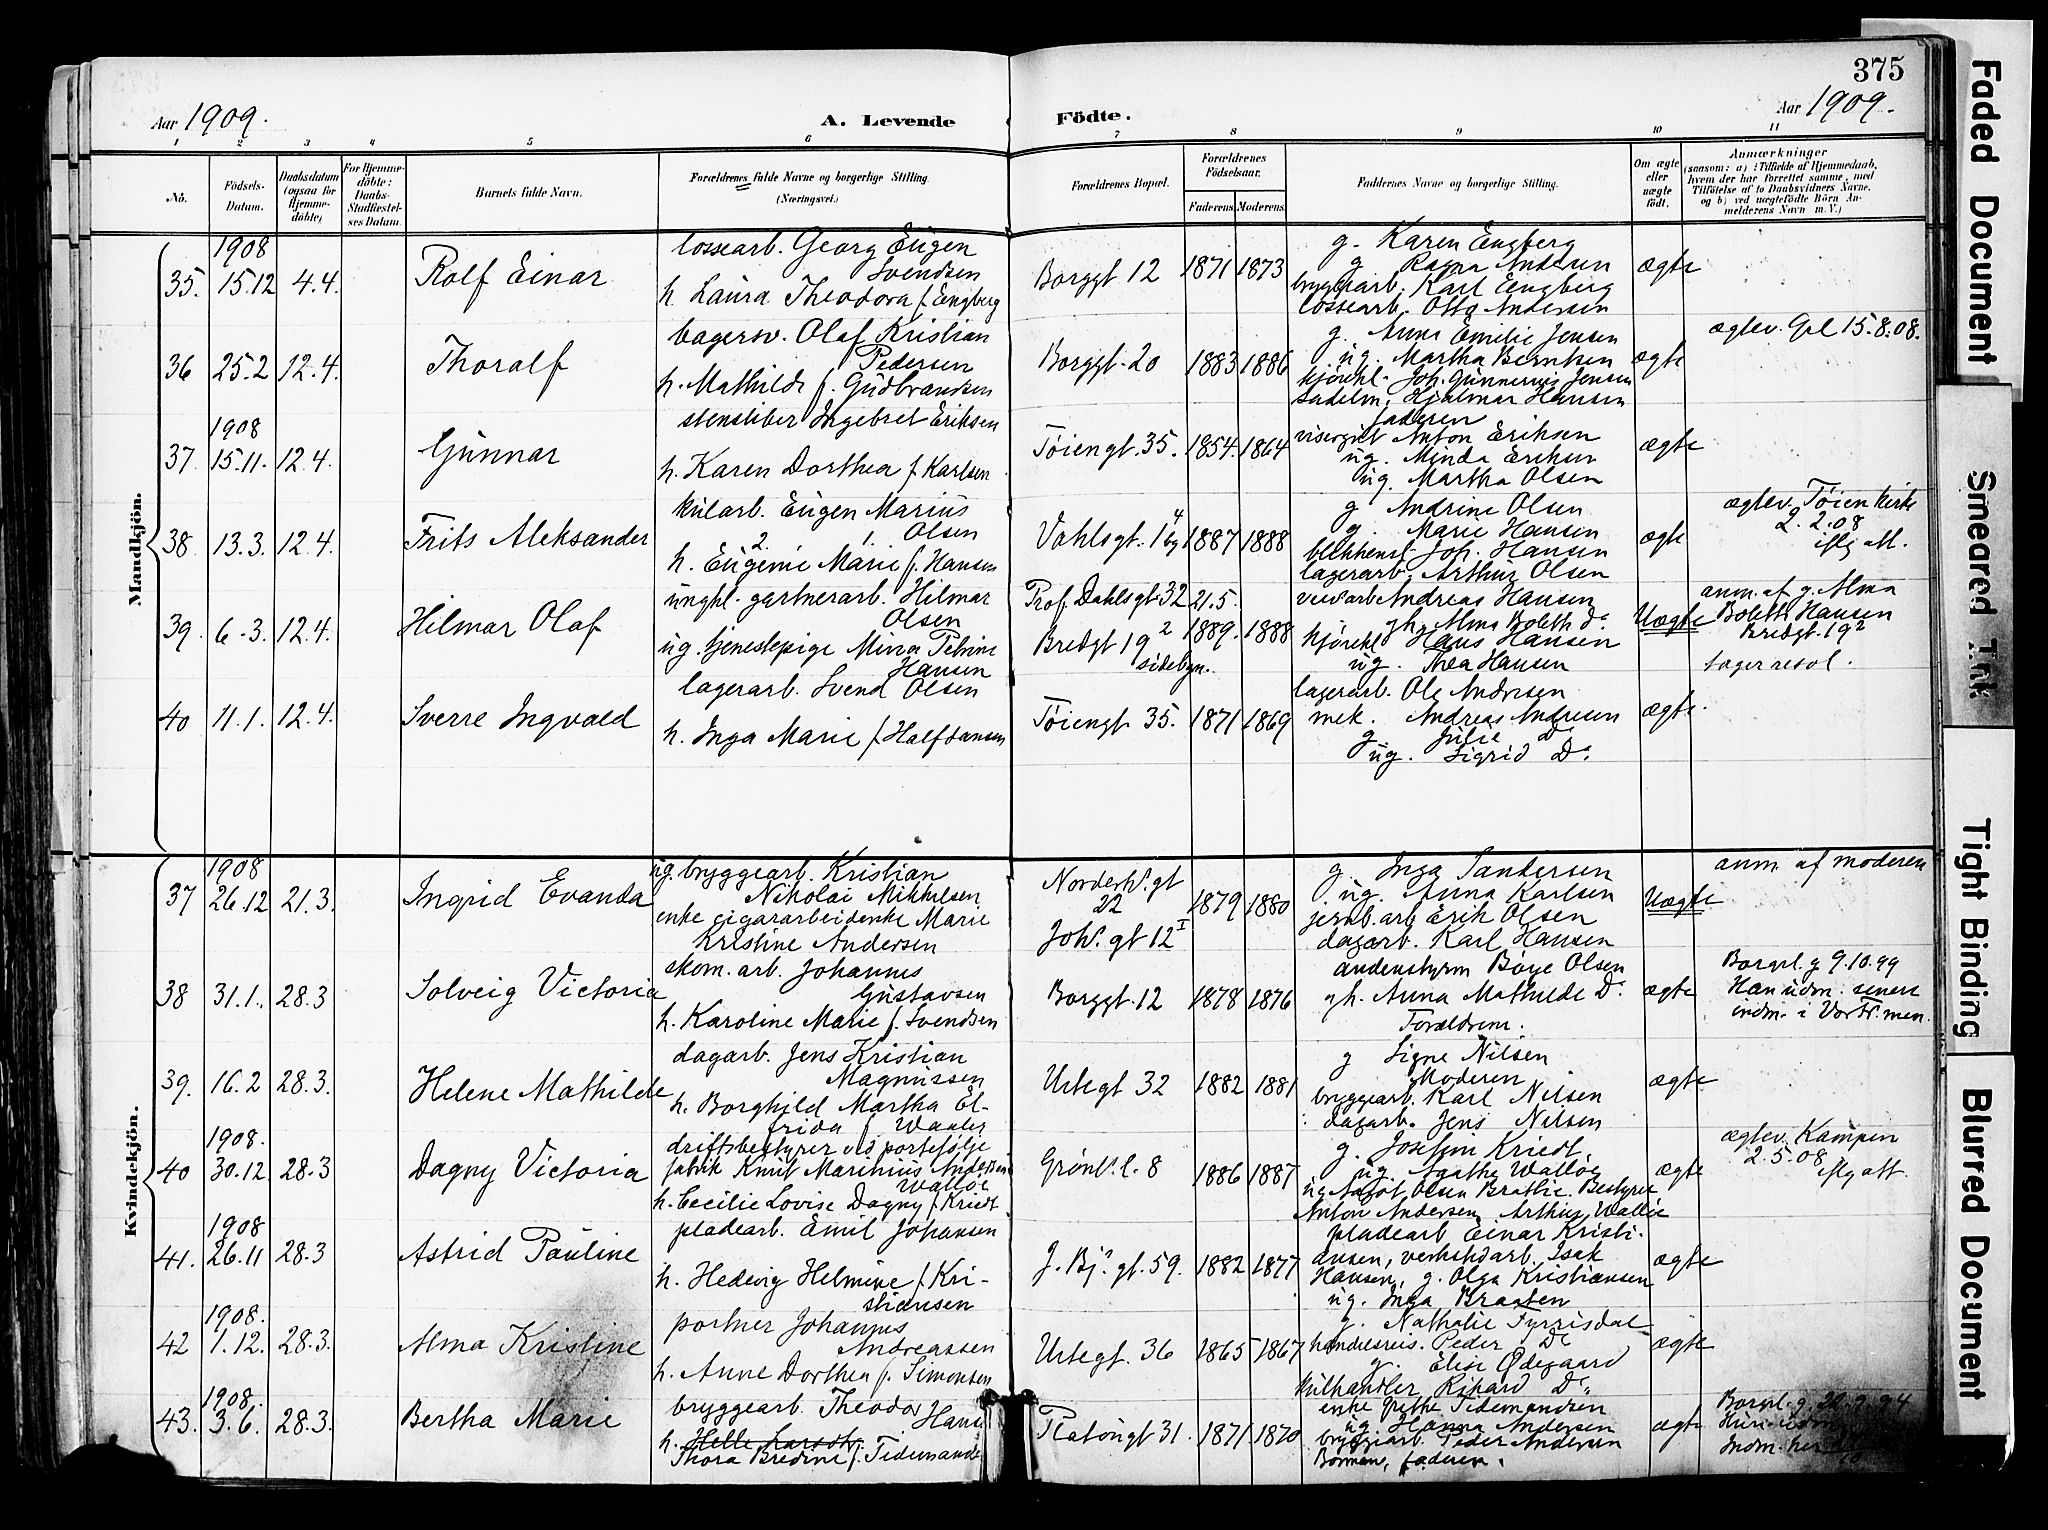 375
Aar 1909.
A. Levende Födte.
Aar 1909.
1 2 3 4 5 6 7 8 9 10 11
No.
Födsels-Datum.
Daabsdatum (ogsaa for Hjemme-döbte)
For Hjemme-döbte: Daabs-Stadfæstel-ses Datum.
Barnets fulde Navn.
Forældrenes fulde Navne og borgerlige Stilling. (Næringsvei.)
Forældrenes Bopæl.
Forældrenes Födselsaar.
Faderens Moderens
Faddernes Navne og borgerlige Stilling.
Om ægte eller uægte födt.
Anmærkninger
(saasom: a) i Tilfælde af Hjemmedaab,
hvem der har forrettet samme, med
Tilföielse af to Daabsvidners Navne,
og b) ved uægtefödte Börn An-
melderens Navn m. V.)
Mandkjön.
35. 1908 15.12 4.4. Rolf Einar
lossearb. Georg Eugen
Svendsen
h. Laura Theodora f. Engberg
Borggt 12 1871 1873
g. Karen Engberg
g. Ragna Andersen
bryggearb. Karl Engberg
lossearb. Otto Andersen
ægte
36 25.2 12.4. Thoralf
bagersv. Olaf Kristian
Pedersen
h. Mathilde f. Gudbrandsen
Borggt. 20 1883 1886
g. Anna Emilie Jensen
ug. Martha Berntsen
kjørekl. Joh. Gunnerius Jensen
sadelm. Hjalmar Hansen
ægte
ægtev. Grl 15.8.08.
37. 1908 15.11. 12.4. Gunnar
stensliber Ingebret Eriksen
h. Karen Dorthea f. Karlsen
Tøiengt. 35. 1854. 1864
faderen
visergut Anton Eriksen
ug. Minda Eriksen
ug. Martha Olsen
ægte
38 13.3. 12.4. Frits Aleksander
kularb. Eugen Marius
2. 1. Olsen
h. Eugenie Marie f. Hansen
Vahlsgt. 1 4 by 1887 1888
g Andrine Olsen
g. Marie Hansen
blikkensl. Joh. Hansen
lagerarb. Arthur Olsen
ægte
ægtev. Tøien kirke
2.2.08
iflg att.
39. 6.3. 12.4. Hilmar Olaf
ungkl. gartnerarb. Hilmar
Olsen
ug. tjenestepige Minna Petrine
Hansen
Prof. Dahlsgt 32
Bredgt 19 2
sidebgn.
21.5. 1889. 1888
Andreas Hansen
gh. Alma Boleth Do
kjørekl. Hans Hansen
ug. Thea Hansen
Uægte
anm. af g. Alma
Boleth Hansen
Bredgt. 19 2
tager resol.
40 11.1. 12.4. Sverre Ingvald
lagerarb. Svend Olsen
h. Inga Marie f. Halfdansen
Tøiengt 35. 1871 1869
lagerarb. Ole Andresen
mek. Andreas Andresen
g. Julie Do
ug. Sigrid Do.
ægte.
Kvindekjön.
37 1908 26.12 21.3. Ingrid Evanda
ug. bryggearb. Kristian
Nikolai Mikkelsen
enke cigararbeiderske Marie
Kristine Andersen
Norderhs. gt
22
Johs. gt 12 I
1879 1880
g. Inga Sandersen
ug. Anna Karlsen
jernb.arb Erik Olsen
dagarb. Karl Hansen
Uægte
anm. af moderen
38 31.1. 28.3 Solveig Victoria
skom. arb. Johannes
Gustavsen
h. Karoline Marie f. Svendsen
Borggt. 12 1878 1876
andenstyrm Børe Olsen
gh. Anna Mathilde Do
Forældrene.
ægte
Borgerl. g 9.10.99
Han udm. senere
indm. i Vor Fr. men.
39. 16.2 28.3. Helene Mathilde
dagarb. Jens Kristian
Magnussen
h. Borghild Martha El-
frida f. Waaler
Urtegt 32 1882 1881
g Signe Nilsen
Moderen
bryggearb. Karl Nilsen
dagarb. Jens Nilsen
ægte
40 1908. 30.12. 28.3 Dagny Victoria
driftsbestyrer ved portefølje
fabrik Knut Marinius Andersen
Walløe
h. Cecilie Lovise Dagny f. Kriedt
Grønl. l. 8 1886 1887
g. Josefin Kriedt.
ug. Agathe Walløe
ug Aagot Olsen Brathie. Bestyrer
Anton Andersen, Arthur Walløe
ægte
ægtev. Kampen
2.5.08
iflg att.
41. 1908 26.11 28.3 Astrid Pauline
pladearb. Emil Johansen
h. Hedevig Helmine f. Kri-
stiansen
J. Bj. gt. 59. 1882 1877
pladearb Einar Kristi-
ansen, verkstedarb. Isak
Hansen, g. Olga Kristiansen
ug. Inga Braaten
ægte
42 1908. 1.12. 28.3. Alma Kristine
portner Johannes
Andreassen
h. Anne Dorthea f. Simonsen
Urtegt. 36 1865 1867
g. Nathalie Fyrrisdal
handelsreis. Peder Do
g. Elise Ødegaard
kulhandler Rikard Do.
ægte
43. 1908. 3.6. 28.3. Bertha Marie
bryggearb. Theodor Hans
h.
Thora Bredine f. Tidemands
Platougt 31 1871 1870
enke Grethe Tidemandsen
ug. Hanna Andersen
bryggearb. Peder Andersen
Børmen, faderen.
ægte
Borgerl. g. 22.9.94
Hun udm.
Indm. her
Faded Document
Smeared Ink
Tight Binding
Blurred Document